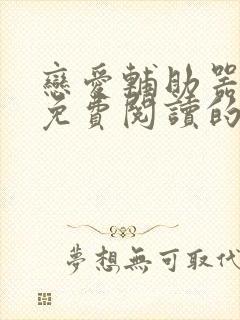 戀愛輔助器
免費閱讀的
夢想無可取代